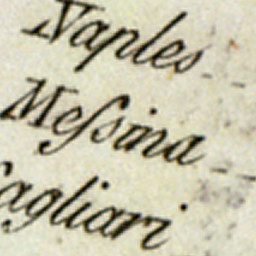 Naples
Meſsina
Cagliari